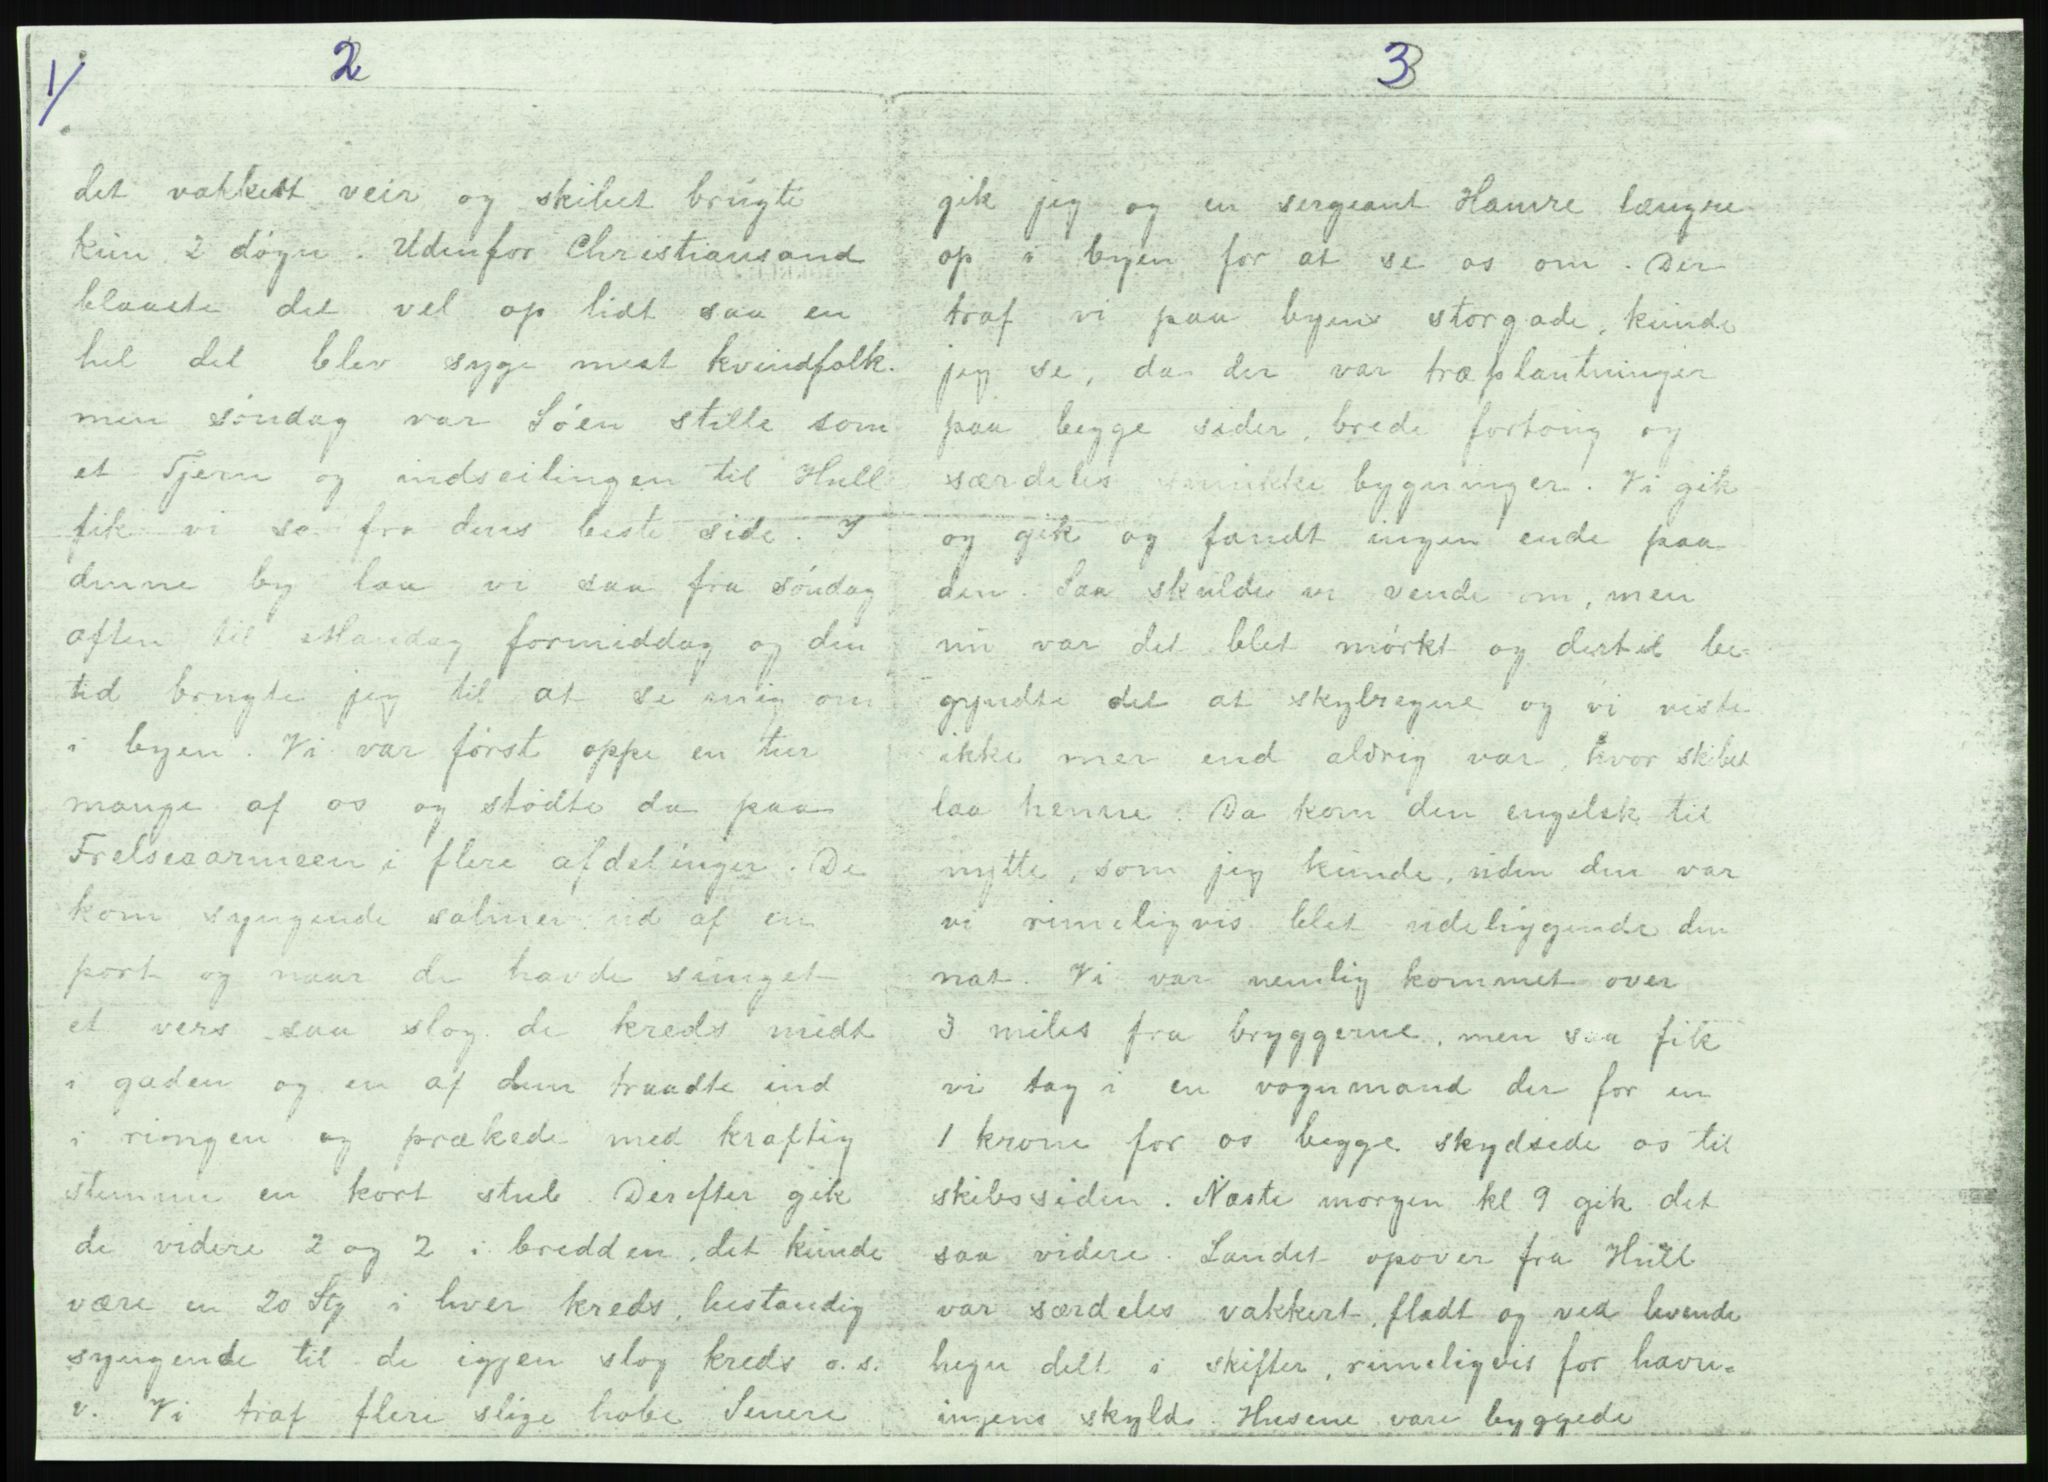 1/
2
det vakkert veir og skibet brugte
kun 2 døgn. Udenfor Christiansand
blaaste det vel op lidt saa en
hel del blev syge mest kvindfolk.
men søndag var Søen stille som
et Tjern og indseilingen til Hull
fik vi se fra dens beste side. I
denne by laa vi saa fra søndag
aften til Mandag formiddag og den
tid brugte jeg til at se mig om
i byen. Vi var først oppe en tur
mange af os og stødte da paa
Frelsesarmeen i flere afdelinger. De
kom syngende salmer ud af en
port og naar de havde sunget
et vers saa slog de kreds midt
i gaden og en af dem traadte ind
i ringen og prækede med kraftig
stemme en kort stub. Derefter gik
de videre 2 og 2 i bredden, det kunde
være en 20 Stg i hver kreds, bestandig
syngende til de igjen slog kreds o.s.
v. Vi traf flere slige hobe Senere
3
gik jeg og en sergeant Hamre længre
op i byen for at se os om. Der
traf vi paa byens storgade, kunde
jeg se, da der var træplantninger
paa begge sider, brede fortoug og
særdeles smukke bygninger. Vi gik
og gik og fandt ingen ende paa
den. Saa skulde vi vende om, men
nu var det blet mørkt og dertil be-
gyndte det at skybregne og vi viste
ikke mer end aldrig var, hvor skibet
laa henne. Da kom den engelsk til
nytte, som jeg kunde, uden den var
vi rimeligvis blet udeliggende den
nat. Vi var nemlig kommet over
3 miles fra bryggerne, men saa fik
vi tag i en vognmand der for en
1 krone for os begge skydsede os til
skibssiden. Næste morgen kl 9 gik det
saa videre. Landet opover fra Hull
var særdeles vakkert, fladt og ved levende
hegn delt i skifter, rimeligvis for havn-
ingens skyld. Husene vare byggede